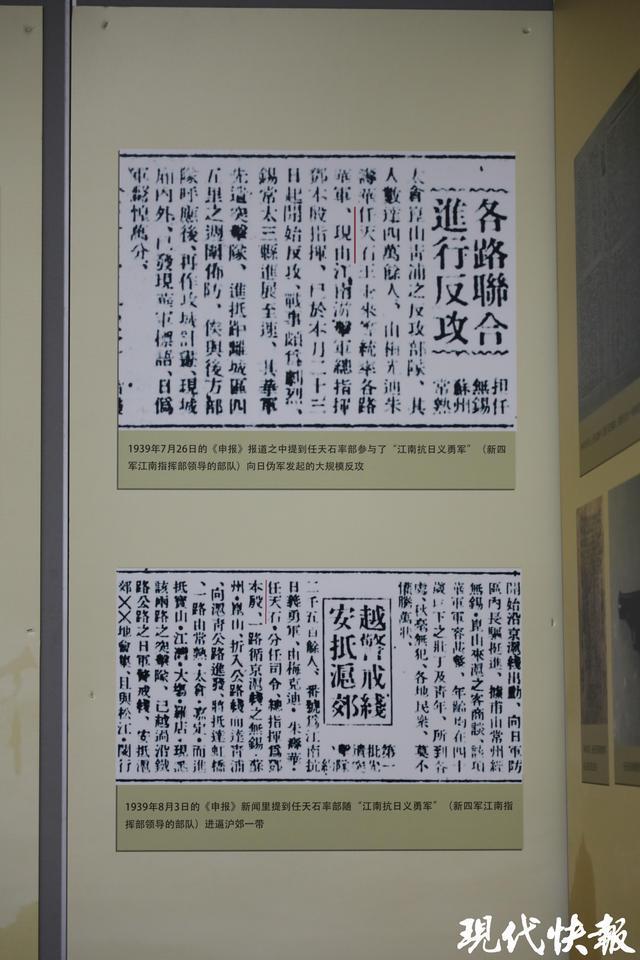 各路聯合
進行反攻
担任
無錫
蘇州
常熟
太倉崑山靑浦之反攻部隊、其
人數達四萬餘人、由梅光迪朱
壽華任天石王士來等統率各路
華軍、現由江南游擊軍總指揮
鄧本殷指揮、已於本月二十三
日起開始反攻、戰事頗爲劇烈、
錫常太三縣進展至速、其華軍
先遣突擊隊、進抵距離城區四
五里之週圍佈防、俟與後方部
隊呼應後、再作攻城計畫、現城
廂內外、已發現華軍標語、日僞
軍驚惶萬分、
1939年7月26日的《申报》报道之中提到任天石率部参与了“江南抗日义勇军”（新四
军江南指挥部领导的部队）向日伪军发起的大规模反攻
開始沿京滬綫出動、向日軍防
區內長驅挺進、據甫由常州經
無錫·崑山來滬之客商談、該項
華軍軍容甚盛、年齡均在四十
歲以下之壯丁及靑年、所到各
處、秋毫無犯、各地民衆、莫不
懽騰萬狀、
越警戒綫
安抵滬郊
第一
批先
遣突
擊隊
約
二千五百餘人、番號爲江南抗
日義勇軍、由梅克迪·朱壽華·
任天石·分任司令、總指揮爲鄧
本殷、一路循京滬綫之無錫·蘇
州·崑山·折入公路綫而達靑浦
、向滬靑公路進發、將抵達虹橋
、一路由常熟·太倉·嘉定·而進
抵寶山·江灣·大塲·羅店·現悉
該兩路之突擊隊、已越過滬
路公路之日軍警戒綫、安抵滬
郊××地會集、且與松江·閔行
1939年8月3日的《申报》新闻里提到任天石率部随“江南抗日义勇军”（新四军江南指
挥部领导的部队）进逼沪郊一带
现代快報